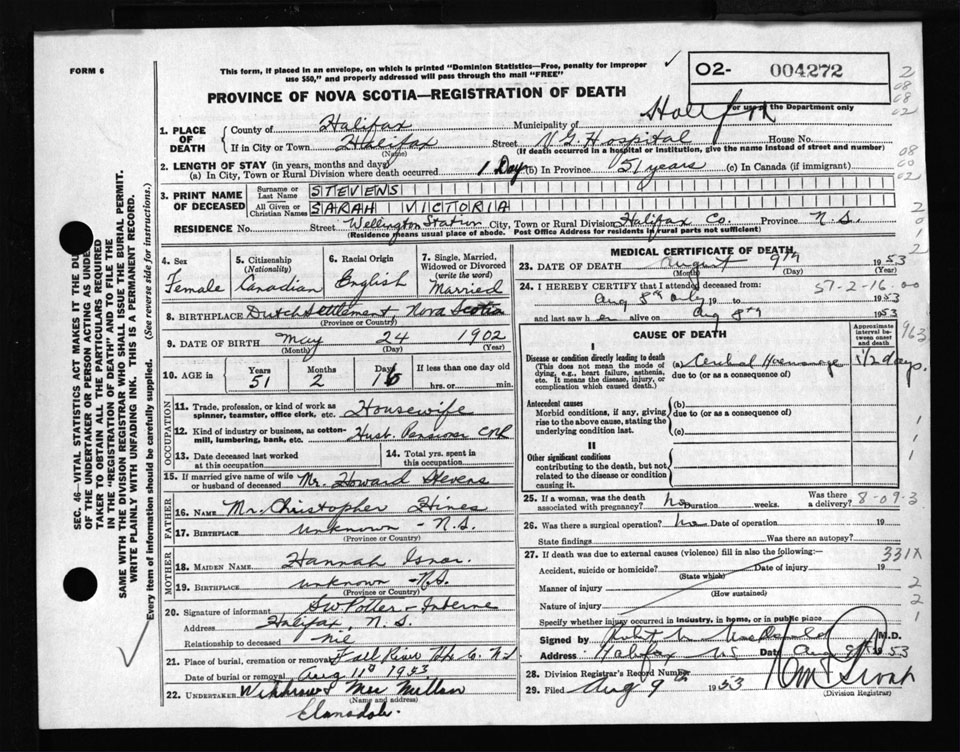 FORM 6
This form, if placed in an envelope, on which is printed "Dominion Statistics—Free, penalty for improper
use $50," and properly addressed will pass through the mail "FREE"
O2- 004272
For use by the Department only
PROVINCE OF NOVA SCOTIA—REGISTRATION OF DEATH
Halifax
1. PLACE OF DEATH
County of Halifax Municipality of
If in City or Town Halifax Street V G Hospital House No.
(Name) (If death occurred in a hospital or institution, give the name instead of street and number)
2. LENGTH OF STAY (in years, months and days)
(a) In City, Town or Rural Division where death occurred 1 Day (b) In Province 51 years (c) In Canada (if immigrant)
3. PRINT NAME OF DECEASED
Surname or Last Name STEVENS
All Given or Christian Names SARAH VICTORIA
RESIDENCE No. Street Wellington Station City, Town or Rural Division Halifax Co. Province N.S.
(Residence means usual place of abode. Post Office Address for residents in rural parts not sufficient)
4. Sex Female
5. Citizenship (Nationality) Canadian
6. Racial Origin English
7. Single, Married, Widowed or Divorced (write the word) Married
8. BIRTHPLACE Dutch Settlement, Nova Scotia
(Province or Country)
9. DATE OF BIRTH May 24 1902
(Month) (Day) (Year)
10. AGE in Years Months Days If less than one day
51 2 16 hrs. or min.
OCCUPATION
11. Trade, profession, or kind of work as spinner, teamster, office clerk, etc. Housewife
12. Kind of industry or business, as cotton-mill, lumbering, bank, etc. Husb. Pensioner CNR
13. Date deceased last worked at this occupation
14. Total yrs. spent in this occupation
15. If married give name of wife or husband of deceased Mr. Howard Stevens
FATHER
16. NAME Mr. Christopher Hines
17. BIRTHPLACE Unknown - N.S.
(Province or Country)
MOTHER
18. MAIDEN NAME Hannah Isnor
19. BIRTHPLACE Unknown - N.S.
(Province or Country)
20. Signature of informant SW Potter - Interne
Address Halifax, N.S.
Relationship to deceased Nil
21. Place of burial, cremation or removal Fall River Hx Co. N.S.
Date of burial or removal Aug 11th 1953
22. UNDERTAKER Mac Millan
(Name and address)
Elmsdale.
MEDICAL CERTIFICATE OF DEATH
23. DATE OF DEATH August 9th 1953
(Month) (Day) (Year)
24. I HEREBY CERTIFY that I attended deceased from: 57-2-16.00
Aug 8th only 19 to 1953
and last saw her alive on Aug 8th 1953
CAUSE OF DEATH
Approximate interval between onset and death
I
Disease or condition directly leading to death (This does not mean the mode of dying, e.g., heart failure, asthenia, etc. It means the disease, injury, or complication which caused death.)
(a) Cerebral Hoemmorage 1/2 days.
due to (or as a consequence of)
Antecedent causes
Morbid conditions, if any, giving rise to the above cause, stating the underlying condition last.
(b)
due to (or as a consequence of)
(c)
II
Other significant conditions
contributing to the death, but not related to the disease or condition causing it.
25. If a woman, was the death associated with pregnancy? No Duration weeks. Was there a delivery? 8-09-3
26. Was there a surgical operation? No Date of operation 19
State findings Was there an autopsy?
27. If death was due to external causes (violence) fill in also the following:— 331X
Accident, suicide or homicide? Date of injury 19
(State which)
Manner of injury
(How sustained)
Nature of injury
Specify whether injury occurred in industry, in home, or in public place
Signed by M.D.
Address Halifax NS Date Aug 9th 1953
28. Division Registrar's Record Number
29. Filed Aug 9th 1953
(Division Registrar)
SEC. 46—VITAL STATISTICS ACT MAKES IT THE DU
OF THE UNDERTAKER OR PERSON ACTING AS UNDE
TAKER TO OBTAIN ALL THE PARTICULARS REQUIRED
IN THE "REGISTRATION OF DEATH" AND TO FILE THE
SAME WITH THE DIVISION REGISTRAR WHO SHALL ISSUE THE BURIAL PERMIT.
WRITE PLAINLY WITH UNFADING INK. THIS IS A PERMANENT RECORD.
Every item of information should be carefully supplied. (See reverse side for instructions.)